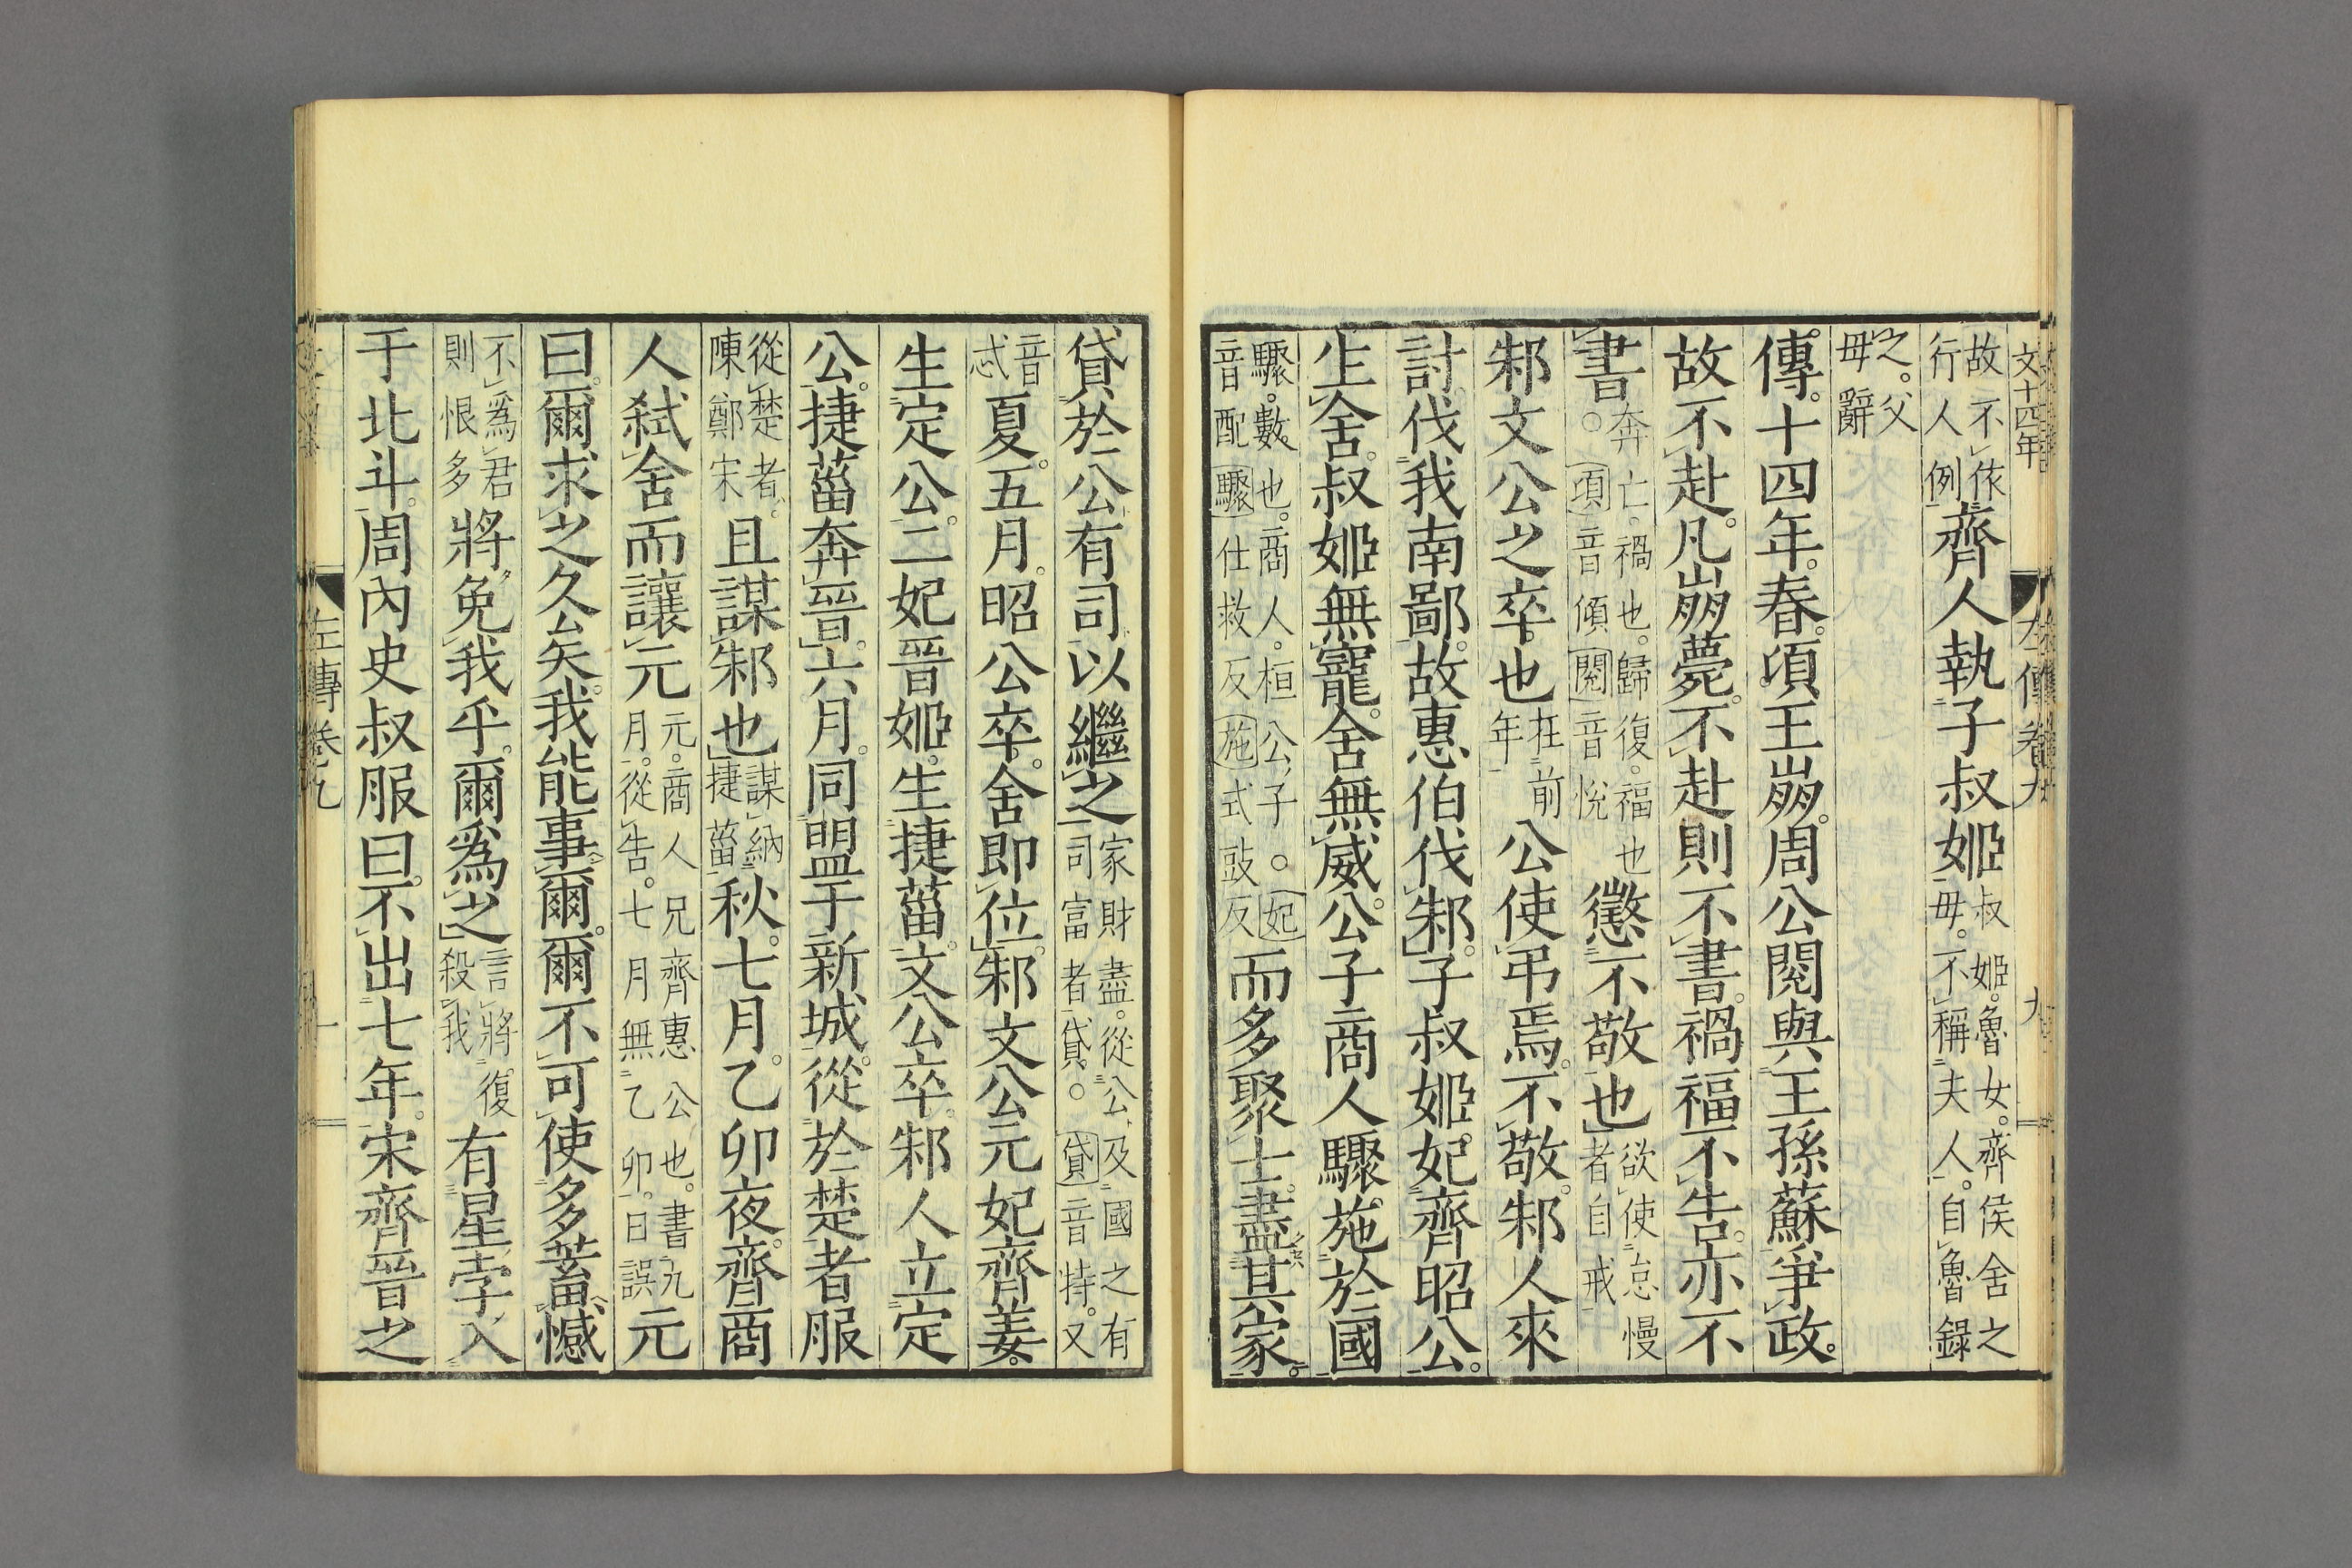 文十四年
左傳卷九
九
故不依齊人執子叔姬叔姬魯女齊侯舍之
行人例母不稱夫人自魯錄
之父
母辭
傳十四年春頃王崩周公閱與王孫蘇爭政
故不赴凡崩薨不赴則不書禍福不告亦不
書奔亡禍也歸復福也懲不敬也欲使怠慢
頃音傾閱音悅者自戒
邾文公之卒也在前年公使弔焉不敬邾人來
討伐我南鄙故惠伯伐邾子叔姬妃齊昭公
生舍叔姬無寵舍無威公子商人驟施於國
驟數也商人桓公子妃
音配驟仕救反施式豉反而多聚士盡其家
貸於公有司以繼之家財盡從公及國之有
司富者貸貸音特又
音忒夏五月昭公卒舍即位邾文公元妃齊姜
生定公二妃晉姬生捷菑文公卒邾人立定
公捷菑奔晉六月同盟于新城從於楚者服
從楚者陳鄭宋且謀邾也謀納捷菑秋七月乙卯夜齊商
人弒舍而讓元元商人兄齊惠公也書九
月從告七月無乙卯日誤元
曰爾求之久矣我能事爾爾不可使多蓄憾
不爲君則恨多將免我乎爾爲之言將復殺我有星孛入
于北斗周內史叔服曰不出七年宋齊晉之
左傳卷九